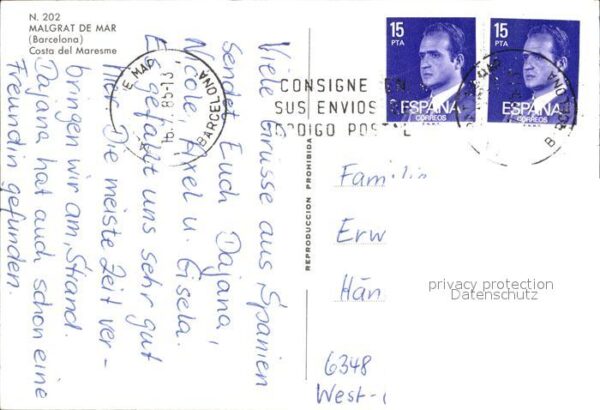 N. 202
MALGRAT DE MAR
(Barcelona)
Costa del Maresme
Viele Grüsse aus Spanien
sendet Euch Dajana,
Nicole, Axel u. Gisela.
Es gefällt uns sehr gut
hier. Die meiste Zeit ver-
bringen wir am Strand.
Dajana hat auch schon eine
Freundin gefunden.
REPRODUCCION PROHIBIDA
15
PTA
ESPAÑA
CORREOS
15
PTA
ESPAÑA
CORREOS
CONSIGNE EN
SUS ENVIOS
CODIGO POSTAL
BARCELONA
Famili
Erw
Hän
6348
West-
privacy protection
Datenschutz